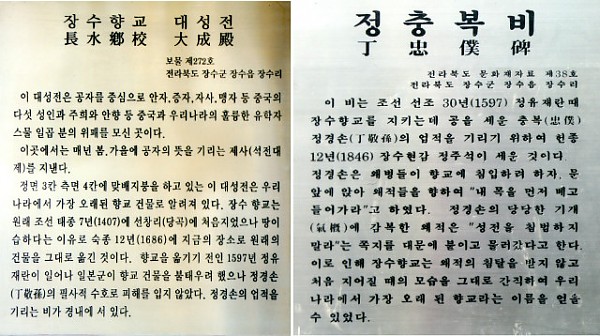 장수향교 대성전
長水鄕校 大成殿
보물 제272호
전라북도 장수군 장수읍 장수리
이 대성전은 공자를 중심으로 안자, 증자, 자사, 맹자 등 중국의
다섯 성인과 주희와 안향 등 중국과 우리나라의 훌륭한 유학자
스물 일곱 분의 위패를 모신 곳이다.
이곳에서는 매년 봄,가을에 공자의 뜻을 기리는 제사(석전대
제)를 지낸다.
정면 3칸 측면 4칸에 맞배지붕을 하고 있는 이 대성전은 우리
나라에서 가장 오래된 향교 건물로 알려져 있다. 장수 향교는
원래 조선 태종 7년(1407)에 선창리(당곡)에 처음지었으나 땅이
습하다는 이유로 숙종 12년(1686)에 지금의 장소로 원래의
건물을 그대로 옮긴 것이다. 향교을 옮기기 전인 1597년 정유
재란이 일어나 일본군이 향교 건물을 불태우려 했으나 정경손
(丁敬孫)의 필사적 수호로 피해를 입지 않았다. 정경손의 업적을
기리는 비가 경내에 서 있다.
정충복비
丁忠僕碑
전라북도 문화재자료 제38호
전라북도 장수군 장수읍 장수리
이 비는 조선 선조 30년(1597) 정유재란 때
장수향교를 지키는데 공을 세운 충복(忠僕)
정경손(丁敬孫)의 업적을 기리기 위하여 헌종
12년(1846) 장수현감 정주석이 세운 것이다.
정경손은 왜병들이 향교에 침입하려 하자, 문
앞에 앉아 왜적들을 향하여 "내 목을 먼저 베고
들어가라"고 하였다. 정경손의 당당한 기개
(氣槪)에 감복한 왜적은 "성전을 침범하지
말라"는 쪽지를 대문에 붙이고 물러갔다고 한다.
이로 인해 장수향교는 왜적의 침탈을 받지 않고
처음 지어질 때의 모습을 그대로 간직하여 우리
나라에서 가장 오래 된 향교라는 이름을 얻을
수 있었다.